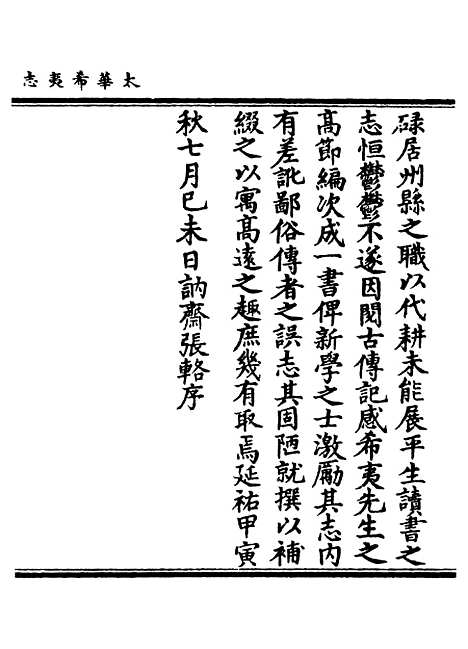 太華希夷志
碌居州縣之職以代耕未能展平生讀書之
志恒鬱鬱不遂因閱古傳記感希夷先生之
高節編次成一書俾新學之士激勵其志内
有差訛鄙俗傳者之誤志其固陋就撰以補
綴之以寓高遠之趣庶幾有取焉延祐甲寅
秋七月已未日訥齋張輅序